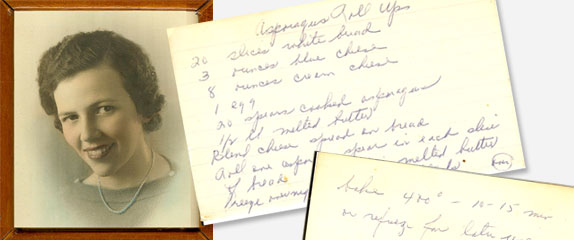 Asparagus Roll Ups
20 slices white bread
3 ounces blue cheese
8 ounces cream cheese
1 egg
20 spears cooked asparagus
1/2 lb melted butter
Blend cheese spread on bread
Roll one spear in each slice
of bread melted butter
Freeze
(over)
bake 400° - 10-15 min
or refreeze for later